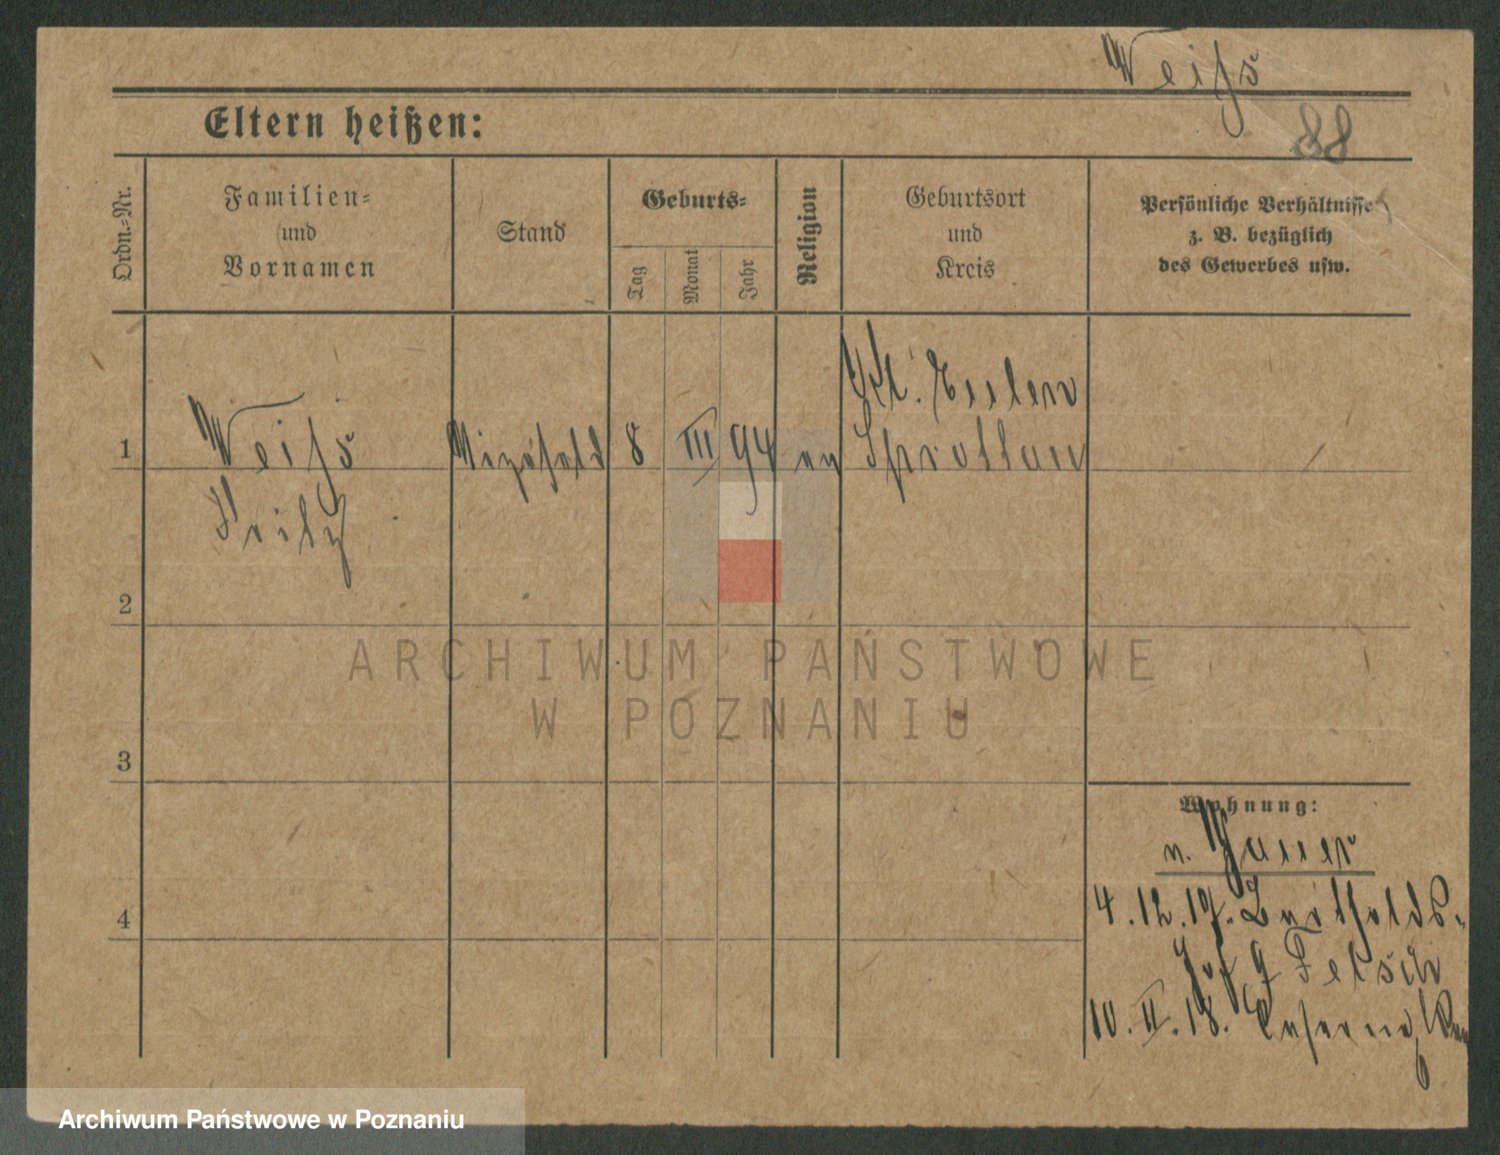 Weiſs
88
Eltern heißen:
Ordn.-Nr.
Familien-
und
Vornamen
Stand
Geburts-
Tag
Monat
Jahr
Religion
Geburtsort
und
Kreis
Persönliche Verhältnisse
z. B. bezüglich
des Gewerbes usw.
Kl. Eulen
1
Weiſs
8
III
94
ev
Sprottau
Fritz
2
ARCHIWUM PAŃSTWOWE
W POZNANIU
3
Wohnung:
n. Jauer
4
4.12.17.
Hof 9
10.II.18.
Archiwum Państwowe w Poznaniu